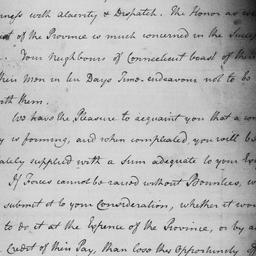 ness with Alacrity & Dispatch. The Honor as
of the Province is much concerned in the Success
Your Neighbours of Connecticut boast of their
their Men in ten Days Time. endeavour not to be
with them.
We have the Pleasure to acquaint you that a
y is forming, and when compleated, you will be
ately supplied with a Sum adequate to your
If Forces cannot be raised without Bounties, we
submit it to your Consideration, whether it wou
to do it at the Expence of the Province, or by a
Credit of their Pay, than lose this Opportunity of